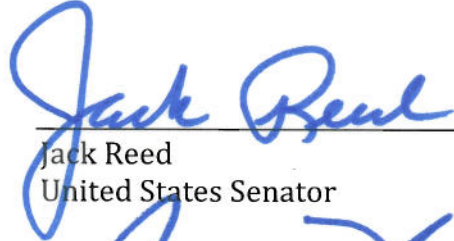 Jack Reed
Jack Reed
United States Senator